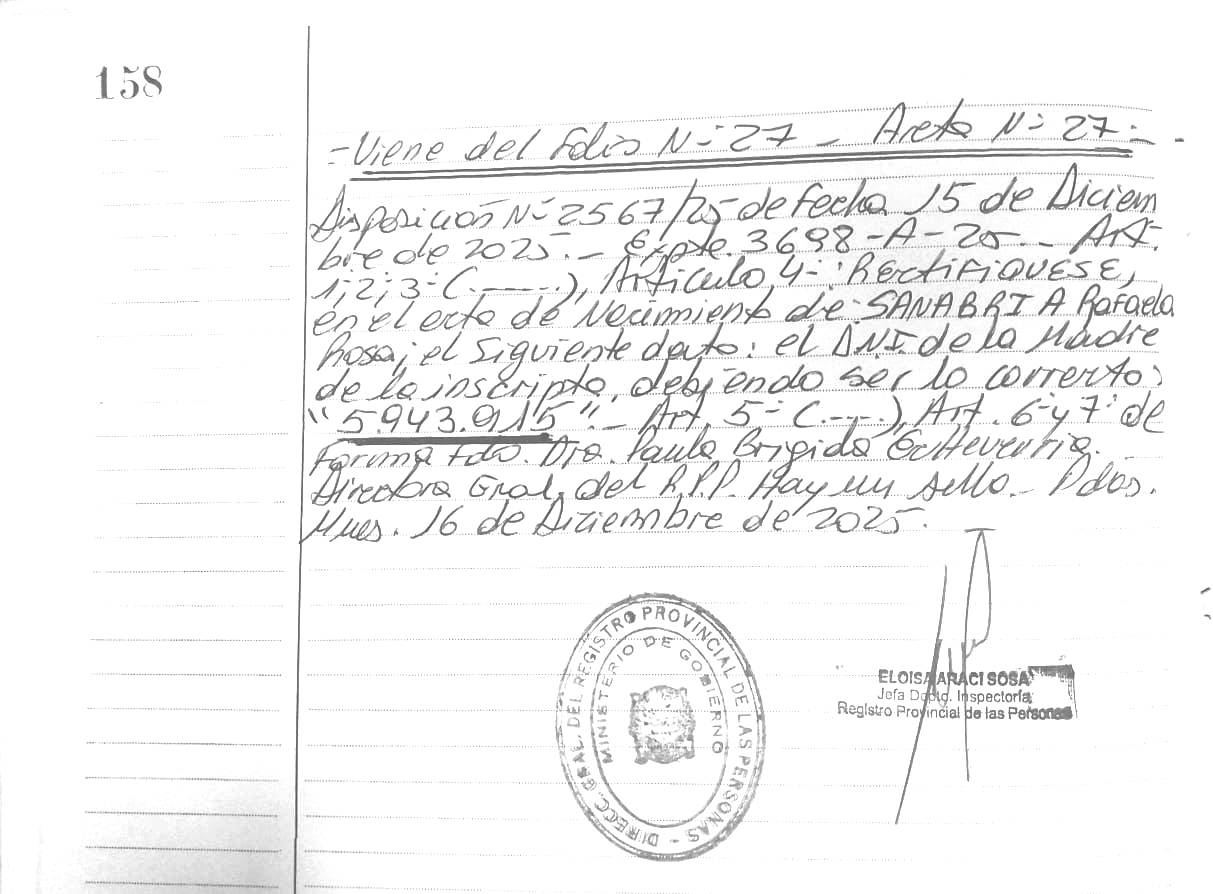 158
-Viene del Folio N° 27 - Acta N° 27.-
Disposición N° 2567/25 de fecha 15 de Diciem
bre de 2025.- Expte. 3698-A-25.- Art.
1; 2; 3° (.-.-.-.), Artículo 4°: Rectifíquese,
en el acta de Nacimiento de: SANABRIA Rafaela
Rosa; el siguiente dato: el D.N.I. de la Madre
de la inscripta, debiendo ser lo correcto:
"5.943.915".- Art. 5° (.-.-.), Art. 6° y 7° de
Forma Fdo. Dra. Paula Brigida Echeverria.
Directora Gral. del R.P.P. Hay un sello.- Pdas.
Mnes. 16 de Diciembre de 2025.
DIRECC. GRAL. DEL REGISTRO PROVINCIAL DE LAS PERSONAS -
MINISTERIO DE GOBIERNO
ELOISA ARACI SOSA
Jefa Dpto. Inspectoría
Registro Provincial de las Personas